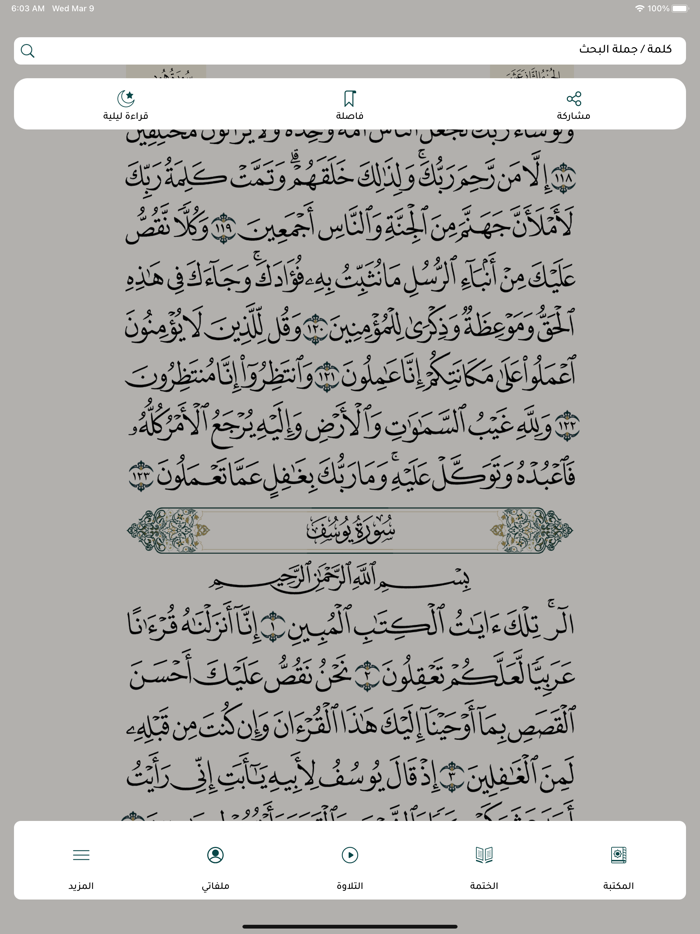 6:03 AM Wed Mar 9
100%
كلمة / جملة البحث
مشاركة
فاصلة
قراءة ليلية
وَلَوْ شَآءَ رَبُّكَ لَجَعَلَ ٱلنَّاسَ أُمَّةً وَٰحِدَةً وَلَا يَزَالُونَ مُخْتَلِفِينَ
١١٨ إِلَّا مَن رَّحِمَ رَبُّكَ ۚ وَلِذَٰلِكَ خَلَقَهُمْ ۗ وَتَمَّتْ كَلِمَةُ رَبِّكَ
لَأَمْلَأَنَّ جَهَنَّمَ مِنَ ٱلْجِنَّةِ وَٱلنَّاسِ أَجْمَعِينَ ١١٩ وَكُلًّا نَّقُصُّ
عَلَيْكَ مِنْ أَنۢبَآءِ ٱلرُّسُلِ مَا نُثَبِّتُ بِهِۦ فُؤَادَكَ ۚ وَجَآءَكَ فِى هَٰذِهِ
ٱلْحَقُّ وَمَوْعِظَةٌ وَذِكْرَىٰ لِلْمُؤْمِنِينَ ١٢٠ وَقُل لِّلَّذِينَ لَا يُؤْمِنُونَ
ٱعْمَلُوا۟ عَلَىٰ مَكَانَتِكُمْ إِنَّا عَٰمِلُونَ ١٢١ وَٱنتَظِرُوٓا۟ إِنَّا مُنتَظِرُونَ
١٢٢ وَلِلَّهِ غَيْبُ ٱلسَّمَٰوَٰتِ وَٱلْأَرْضِ وَإِلَيْهِ يُرْجَعُ ٱلْأَمْرُ كُلُّهُۥ
فَٱعْبُدْهُ وَتَوَكَّلْ عَلَيْهِ ۚ وَمَا رَبُّكَ بِغَٰفِلٍ عَمَّا تَعْمَلُونَ ١٢٣
سُورَةُ يُوسُفَ
بِسْمِ ٱللَّهِ ٱلرَّحْمَٰنِ ٱلرَّحِيمِ
الٓر ۚ تِلْكَ ءَايَٰتُ ٱلْكِتَٰبِ ٱلْمُبِينِ ١ إِنَّآ أَنزَلْنَٰهُ قُرْءَٰنًا
عَرَبِيًّا لَّعَلَّكُمْ تَعْقِلُونَ ٢ نَحْنُ نَقُصُّ عَلَيْكَ أَحْسَنَ
ٱلْقَصَصِ بِمَآ أَوْحَيْنَآ إِلَيْكَ هَٰذَا ٱلْقُرْءَانَ وَإِن كُنتَ مِن قَبْلِهِۦ
لَمِنَ ٱلْغَٰفِلِينَ ٣ إِذْ قَالَ يُوسُفُ لِأَبِيهِ يَٰٓأَبَتِ إِنِّى رَأَيْتُ
المكتبة
الختمة
التلاوة
ملفاتي
المزيد